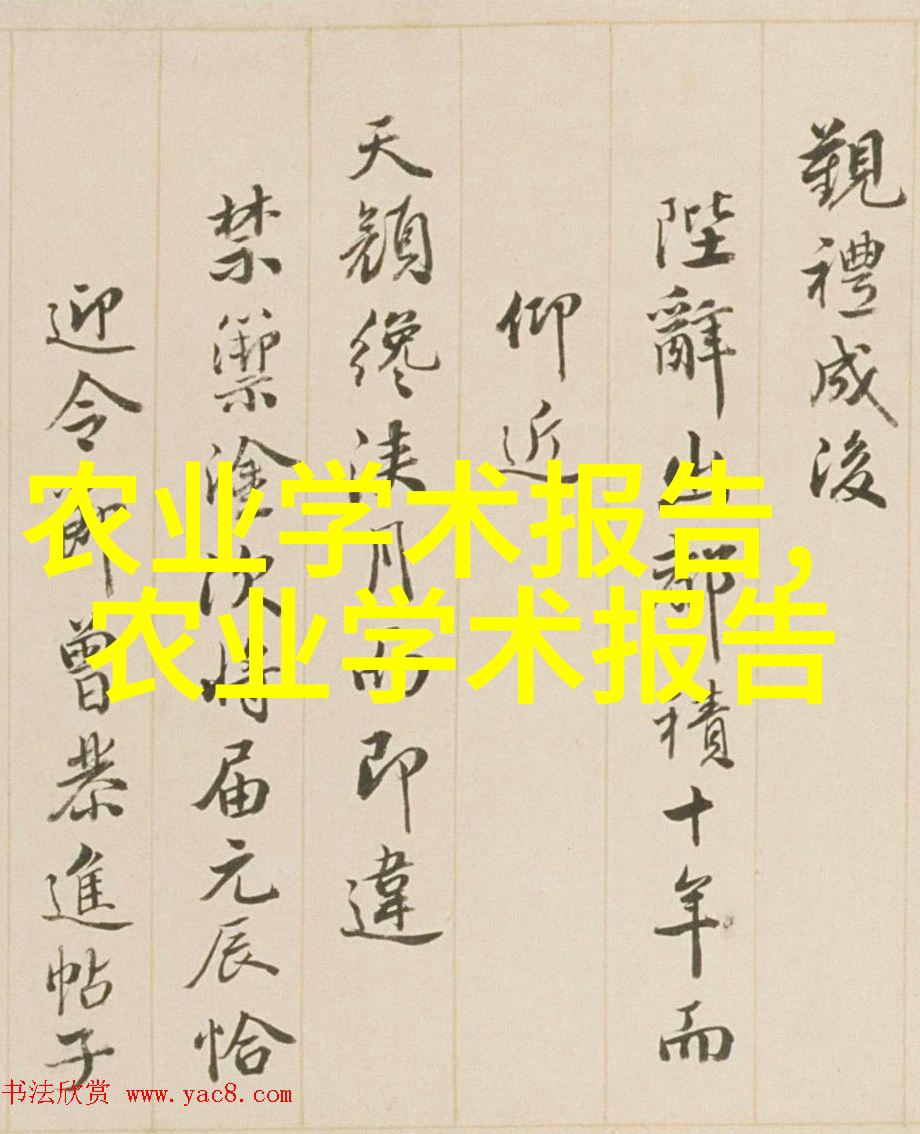 覲禮成後
陛辭出都積十年而
仰近
天顏纔浹月而即違
禁籞塗次將届元辰恰
迎令節曾恭進帖子
农业学术报告,
农业学术报告
书法欣赏 www.yac8.com